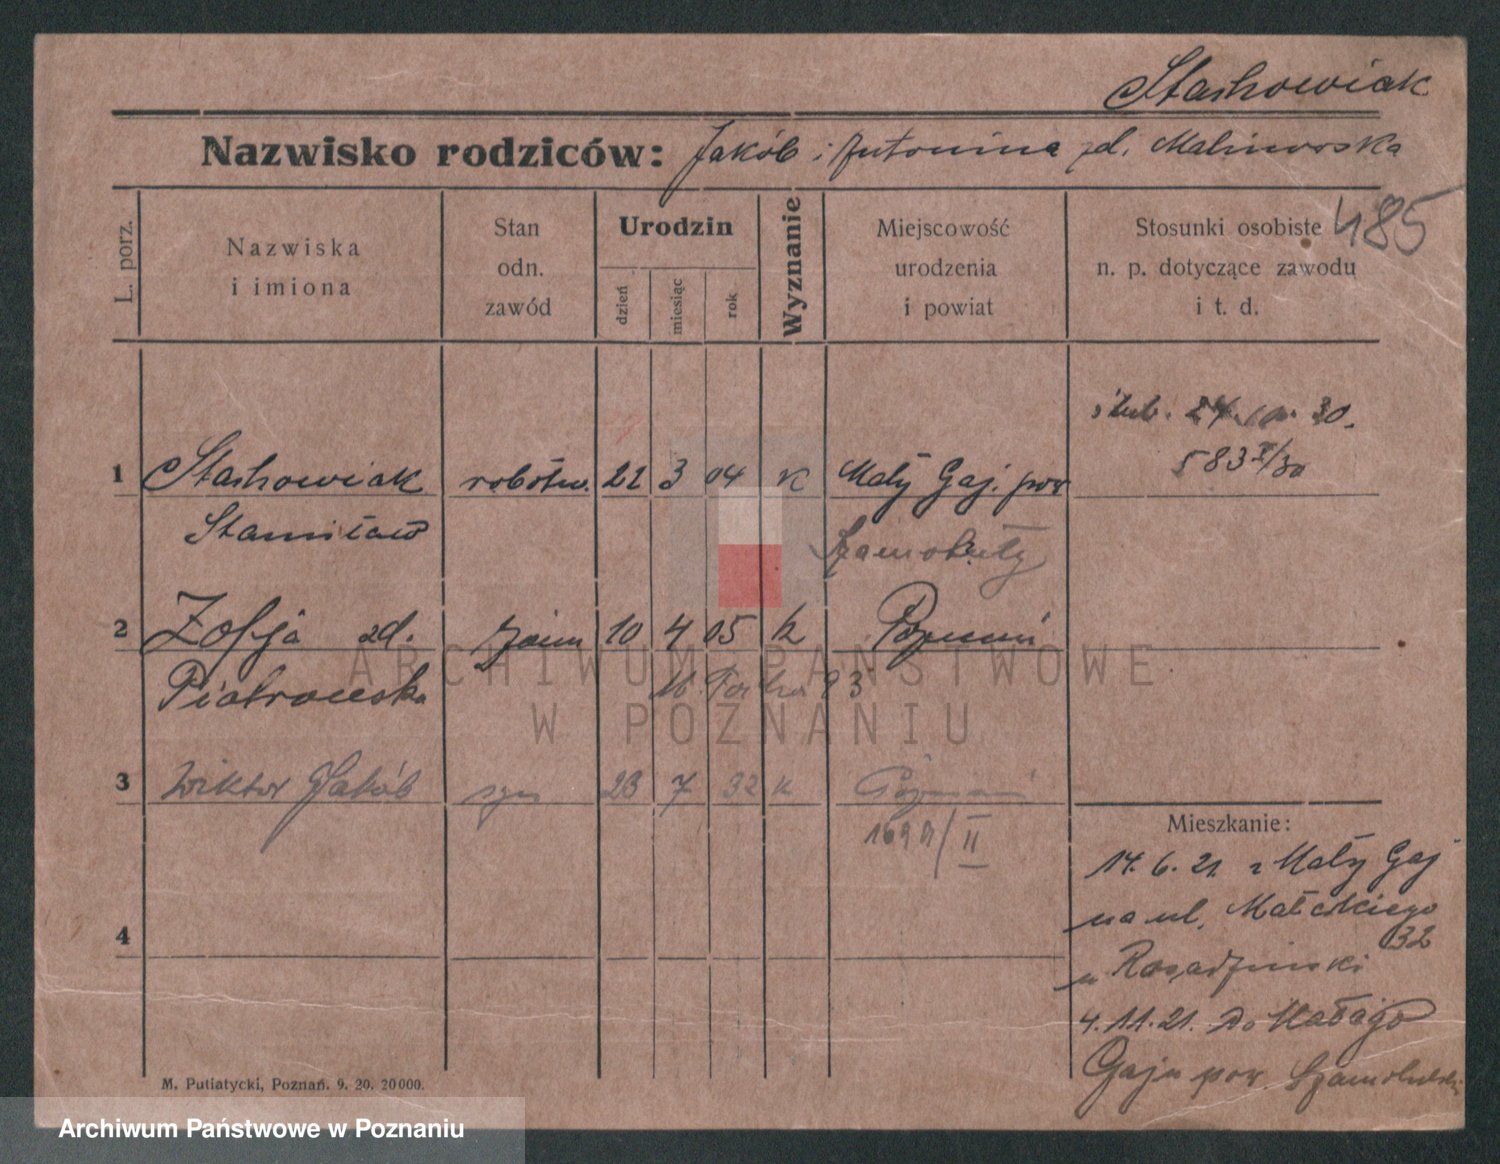 Stachowiak
Nazwisko rodziców: Jakób i Antonina zd. Malinowska
485
L. porz.
Nazwiska
i imiona
Stan
odn.
zawód
Urodzin
dzień
miesiąc
rok
Wyznanie
Miejscowość
urodzenia
i powiat
Stosunki osobiste
n. p. dotyczące zawodu
i t. d.
ślub. 30.
583 /30
1 Stachowiak robotn. 22 3 04 K Mały Gaj. pow
Stanisław Szamotuły
2 Zofja zd. żona 10 4 05 K Poznań
Piotrowska
3 Wiktor Jakób syn 23 7 32 K Poznań
II
4
Mieszkanie:
14.6.21. z Mały Gaj
na ul. Małeckiego
32
u
4.11.21. do Małego
Gaju pow. Szamotulski
M. Putiatycki, Poznań. 9. 20. 20000.
ARCHIWUM PAŃSTWOWE
W POZNANIU
Archiwum Państwowe w Poznaniu